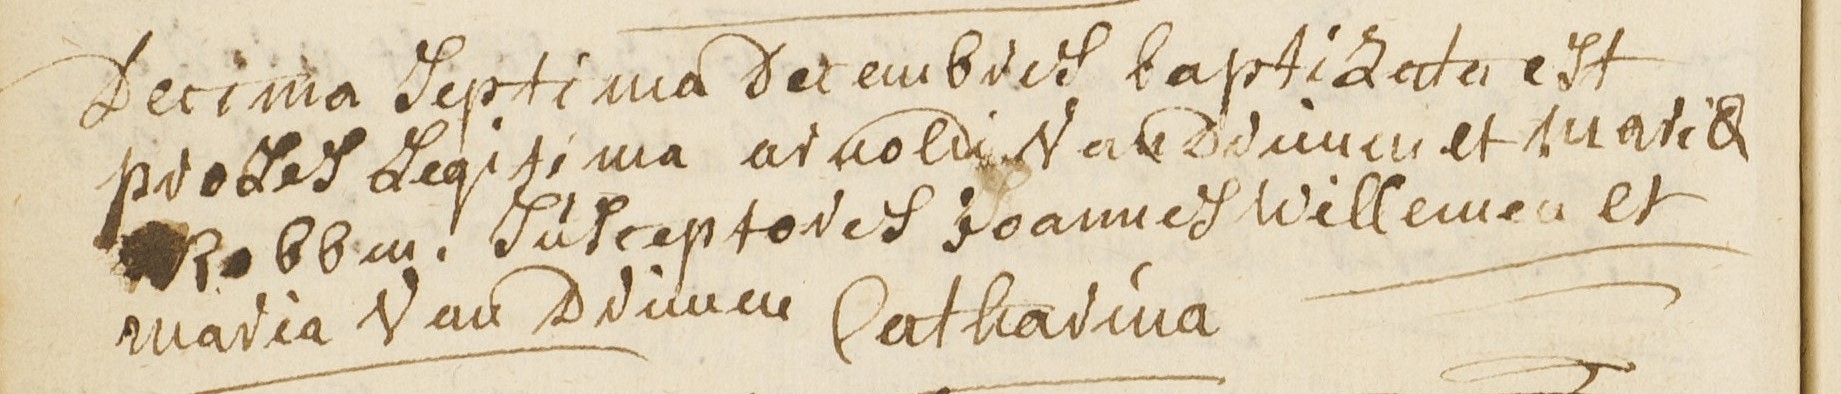 Decima Septima Decembris baptizata est
proles Legitima arnoldi Van Drunen et Mariæ
Robben. Susceptores Joannes Willemen et
maria Van Drunen Catharina